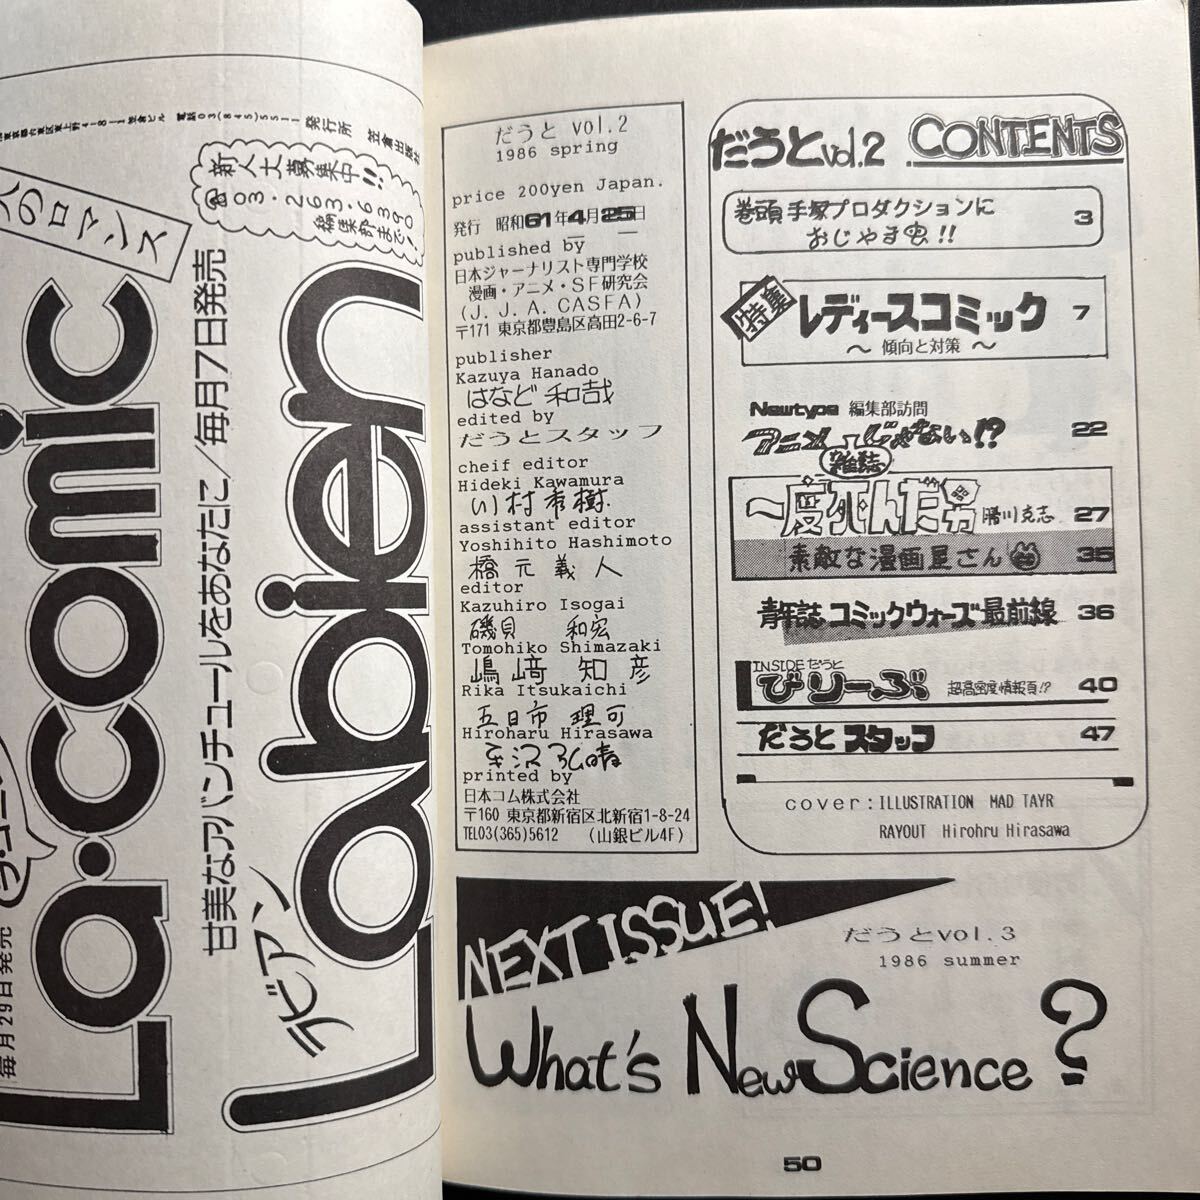 笠倉出版社
発行所
電話03(845)5511
東京都台東区東上野4-8-1笠倉ビル
新人大募集中!!
☎03・263・6390
編集部まで!
人のロマンス
La・comic
毎月29日発売
甘美なアバンチュールをあなたに/毎月7日発売
Labien
ラビアン
だうと vol.2
1986 spring
price 200yen Japan.
発行 昭和61年4月25日
published by
日本ジャーナリスト専門学校
漫画・アニメ・SF研究会
(J.J.A.CASFA)
〒171 東京都豊島区高田2-6-7
publisher
Kazuya Hanado
はなど 和哉
edited by
だうとスタッフ
cheif editor
Hideki Kawamura
川村秀樹
assistant editor
Yoshihito Hashimoto
橋元義人
editor
Kazuhiro Isogai
磯貝 和宏
Tomohiko Shimazaki
嶋崎 知彦
Rika Itsukaichi
五日市 理可
Hiroharu Hirasawa
平沢弘晴
printed by
日本コム株式会社
〒160 東京都新宿区北新宿1-8-24
TEL03(365)5612 (山銀ビル4F)
だうとvol.2 CONTENTS
巻頭 手塚プロダクションに
おじゃま虫!! 3
特集 レディースコミック 7
～ 傾向と対策 ～
Newtype 編集部訪問
アニメ雑誌じゃない!? 22
一度死んだ男 勝川克志 27
素敵な漫画屋さん 35
青年誌コミックウォーズ最前線 36
INSIDEだうと
びりーぶ 超高密度情報頁!? 40
だうとスタッフ 47
cover:ILLUSTRATION MAD TAYR
RAYOUT Hirohru Hirasawa
NEXT ISSUE!
だうとvol.3
1986 summer
What's New Science?
50